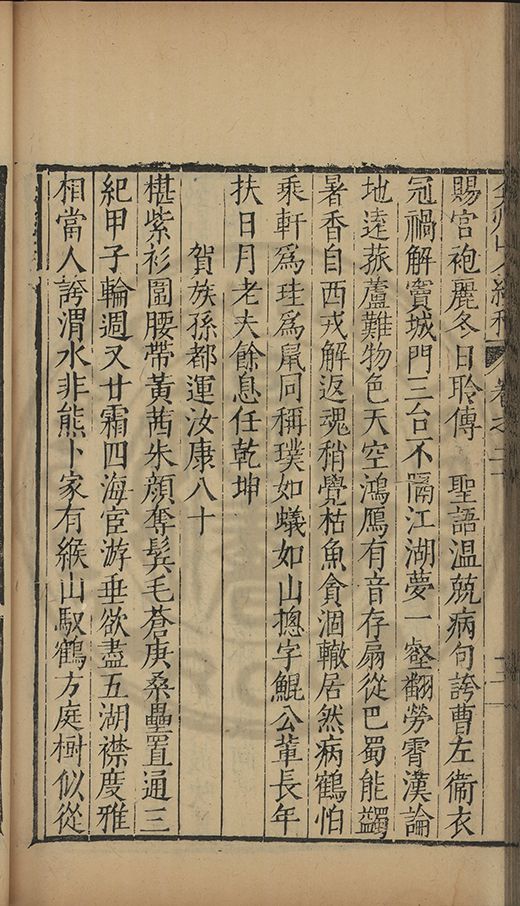 弇州山人續稿 卷之
賜官袍麗冬日聆傳 聖語溫兢病句誇曹左衞衣
冠禍解竇城門三台不隔江湖夢一壑翻勞霄漢論
地逺菰蘆難物色天空鴻鴈有音存扇從巴蜀能蠲
暑香自西戎解返魂稍覺枯魚貪涸轍居然病鶴怕
乘軒爲珪爲鼠同稱璞如蟻如山摠字鯤公輩長年
扶日月老夫餘息任乾坤
賀族孫都運汝康八十
椹紫衫圍腰帶黃茜朱顏奪鬂毛蒼庚桑壘置通三
紀甲子輪週又廿霜四海宦游垂欲盡五湖襟度雅
相當人誇渭水非熊卜家有緱山馭鶴方庭樹似從